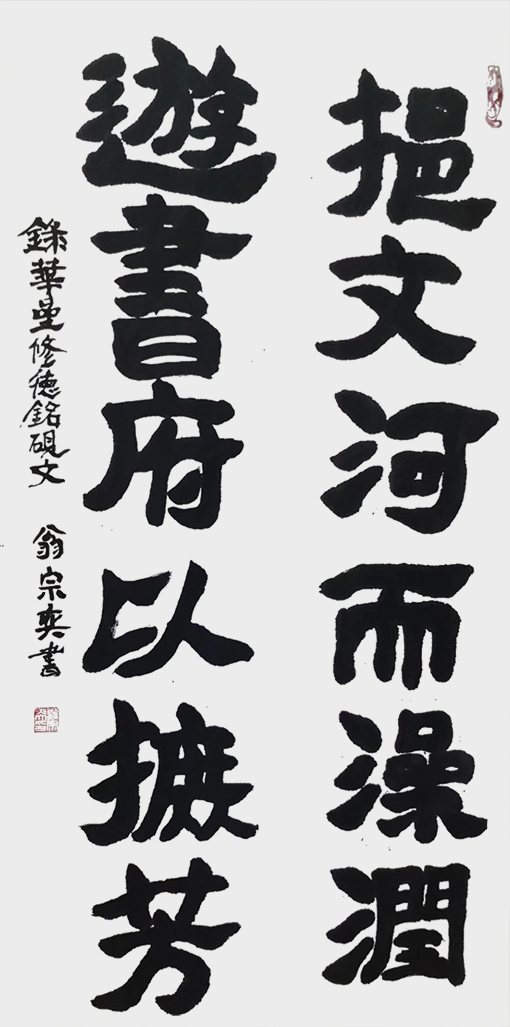 挹文河而澡潤
遊書府以摭芳
錄華修德銘硯文 翁宗奕書